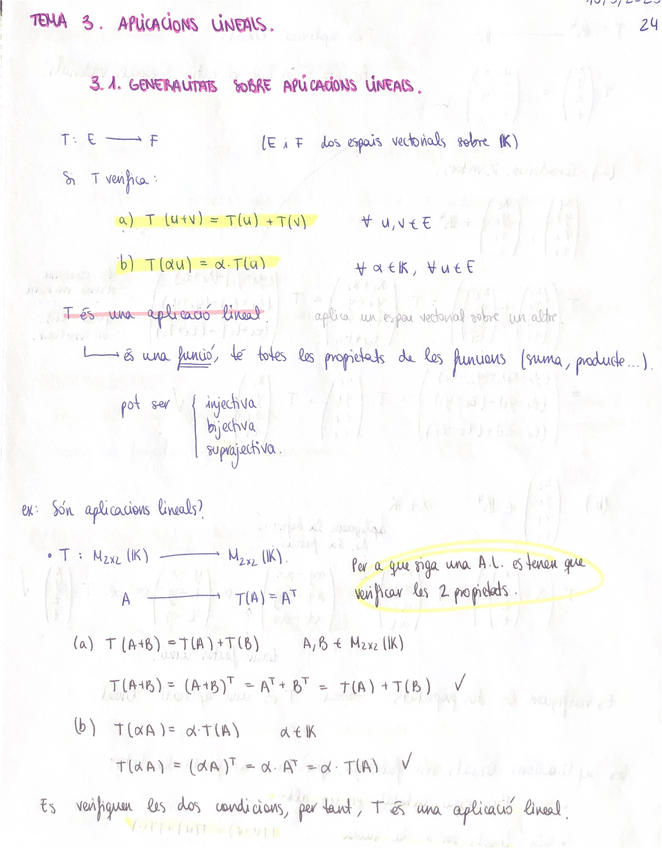 24
TEMA 3. APLICACIONS LINEALS.
3.1. GENERALITATS SOBRE APLICACIONS LINEALS.
T: E ⟶ F (E i F dos espais vectorials sobre IK)
Si T verifica:
a) T (u+v) = T(u) + T(v) ∀ u,v ∈ E
b) T(αu) = α·T(u) ∀ α ∈ IK, ∀ u ∈ E
T és una aplicació lineal aplica un espai vectorial sobre un altre.
↳ és una funció, té totes les propietats de les funcions (suma, producte...).
pot ser { injectiva
bijectiva
suprajectiva.
ex: Són aplicacions lineals?
• T : M₂ₓ₂ (IK) ⟶ M₂ₓ₂ (IK).
A ⟶ T(A) = Aᵀ
Per a que siga una A.L. es tenen que
verificar les 2 propietats.
(a) T(A+B) = T(A) + T(B) A,B ∈ M₂ₓ₂ (IK)
T(A+B) = (A+B)ᵀ = Aᵀ + Bᵀ = T(A) + T(B) ✓
(b) T(αA) = α·T(A) α ∈ IK
T(αA) = (αA)ᵀ = α·Aᵀ = α· T(A) ✓
Es verifiquen les dos condicions, per tant, T és una aplicació lineal.